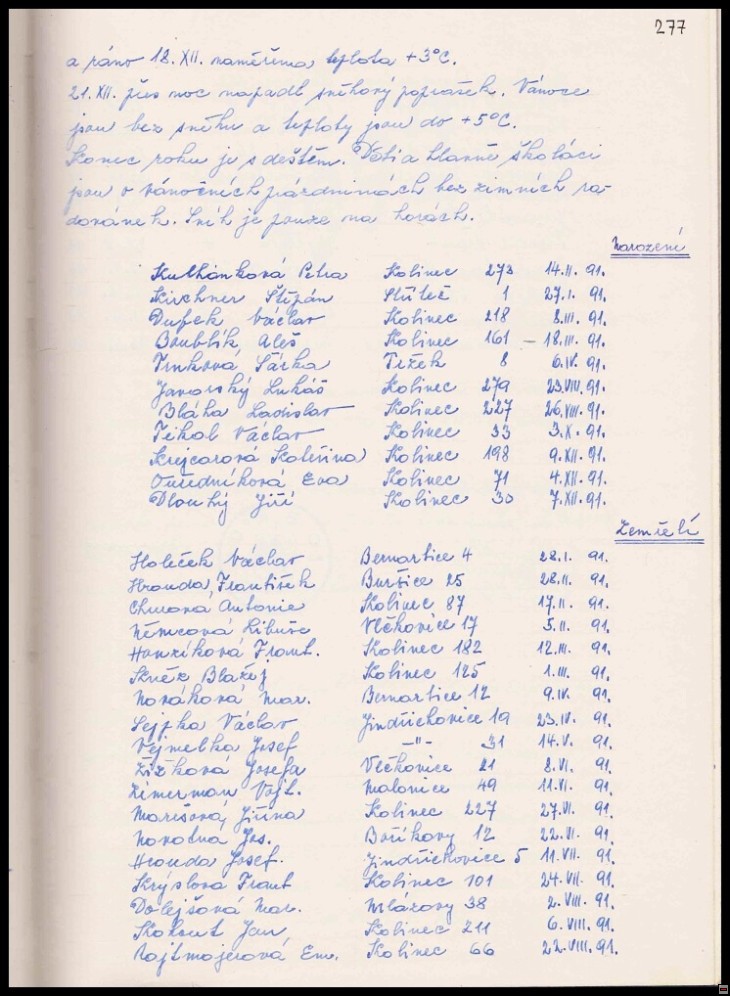 277
a ráno 18. XII. naměřena teplota +3°C.
21. XII. přes noc napadl sněhový poprašek. Vánoce
jsou bez sněhu a teploty jsou do +5°C.
Konec roku je s deštěm. Děti a hlavně školáci
jsou o vánočních prázdninách bez zimních ra-
dovánek. Sníh je pouze na horách.
Narození
Kulhánková Petra Kolinec 273 14. II. 91.
Kirchner Štěpán 1 27. I. 91.
Dufek Václav Kolinec 218 8. III. 91.
Boublík Aleš Kolinec 161 – 18. III. 91.
Trnková Šárka Tržek 8 6. IV. 91.
Javorský Lukáš Kolinec 279 23. VIII. 91.
Bláha Ladislav Kolinec 227 26. VIII. 91.
Tikal Václav Kolinec 33 3. X. 91.
Krejcarová Kateřina Kolinec 198 9. XII. 91.
Ouředníková Eva Kolinec 71 4. XII. 91.
Dlouhý Jiří Kolinec 30 7. XII. 91.
Zemřelí
Holeček Václav Bernartice 4 28. I. 91.
Hrouda František Buršice 25 28. II. 91.
Antonie Kolinec 87 17. II. 91.
Němcová Libuše Vlčkovice 17 5. II. 91.
Hanzíková Frant. Kolinec 182 12. III. 91.
Blažej Kolinec 125 1. III. 91.
Nováková Mar. Bernartice 12 9. IV. 91.
Sejpka Václav Jindřichovice 19 23. IV. 91.
Vejmelka Josef –"– 31 14. V. 91.
Žižková Josefa Vlčkovice 21 8. VI. 91.
Zimerman Vojt. Malonice 49 11. VI. 91.
Marešová, Jiřina Kolinec 227 27. VI. 91.
Novotná Jos. Boříkovy 12 22. VI. 91.
Hrouda Josef. Jindřichovice 5 11. VII. 91.
Krýslová Frant Kolinec 101 24. VII. 91.
Dolejšová Mar. Mlázovy 38 2. VIII. 91.
Kohout Jan Kolinec 211 6. VIII. 91.
Rajtmajerová Em. Kolinec 66 22. VIII. 91.